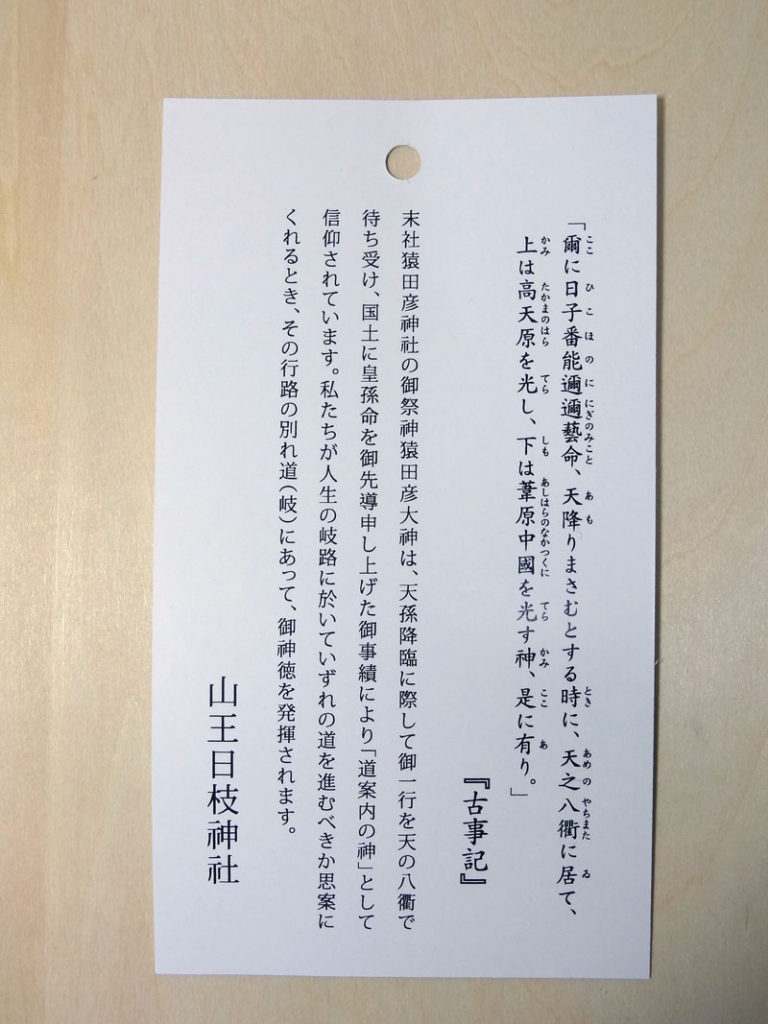 「爾に日子番能邇邇藝命、天降りまさむとする時に、天之八衢に居て、
上は高天原を光し、下は葦原中國を光す神、是に有り。」
『古事記』
末社猿田彦神社の御祭神猿田彦大神は、天孫降臨に際して御一行を天の八衢で
待ち受け、国土に皇孫命を御先導申し上げた御事績により「道案内の神」として
信仰されています。私たちが人生の岐路に於いていずれの道を進むべきか思案に
くれるとき、その行路の別れ道（岐）にあって、御神徳を発揮されます。
山王日枝神社